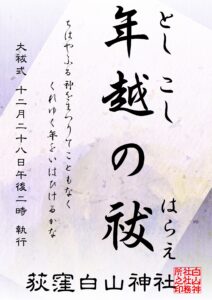 とし こし はらえ
年越の祓
ちはやふる神をまつりてこともなく
くれゆく年をいはひけるかな
大祓式 十二月二十八日午後二時 執行
荻窪白山神社
白山神
社社務
所之印